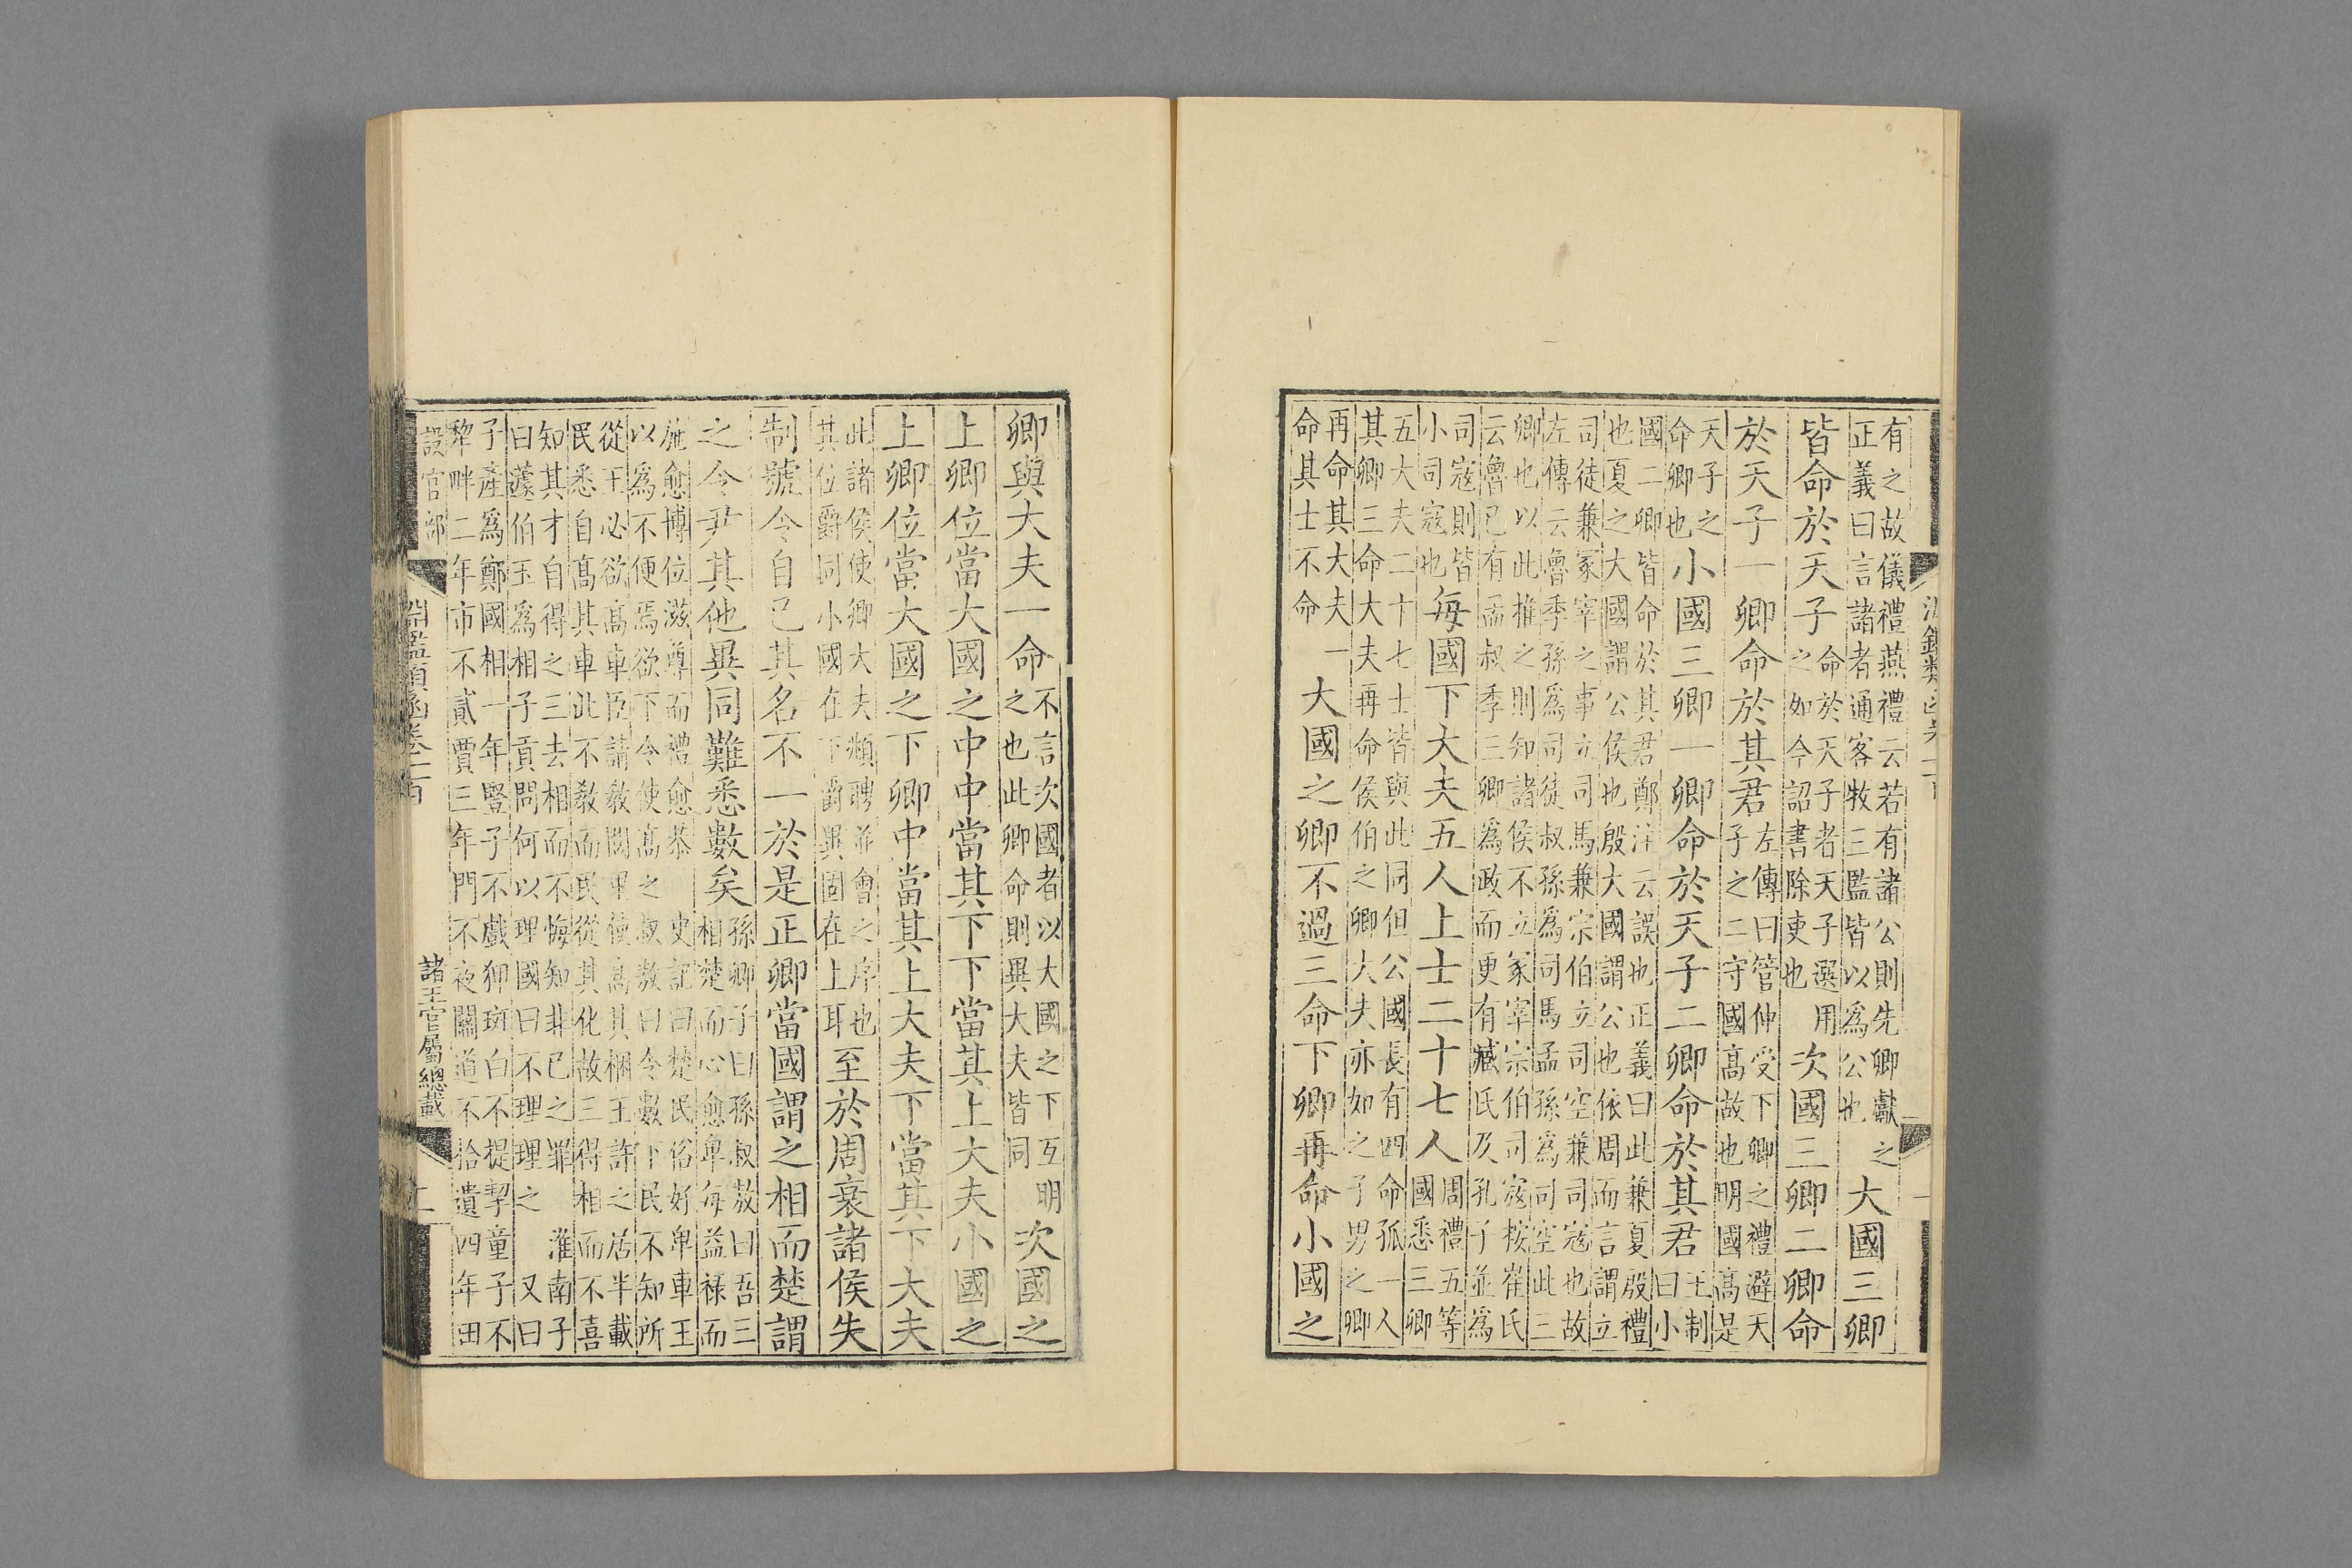 有之故儀禮燕禮云若有諸公則先卿獻之
正義曰言諸者通客牧三監皆以為公也
大國三卿
皆命於天子
命於天子者天子選用
之如今詔書除吏也
次國三卿二卿命
於天子一卿命於其君
左傳曰管仲受下卿之禮避天
子之二守國高故也明國高是
天子之
命卿也
小國三卿一卿命於天子二卿命於其君
王制
曰小
國二卿皆命於其君鄭注云誤也正義曰此兼夏殷禮
也夏之大國謂公侯也殷大國謂公也依周而言謂立
司徒兼冢宰之事立司馬兼宗伯立司空兼司寇也故
左傳云魯季孫為司徒叔孫為司馬孟孫為司空此三
卿也以此推之則知諸侯不立冢宰宗伯司寇桉崔氏
云魯已有孟叔季三卿為政而更有臧氏及孔子並為
司寇則皆
小司寇也
每國下大夫五人上士二十七人
周禮五等
國悉三卿
五大夫二十七士皆與此同但公國長有四命孤一人
其卿三命大夫再命侯伯之卿大夫亦如之子男之卿
再命其大夫一
命其士不命
大國之卿不過三命下卿再命小國之
卿與大夫一命
不言次國者以大國之下互明
之也此卿命則異大夫皆同
次國之
上卿位當大國之中中當其下下當其上大夫小國之
上卿位當大國之下卿中當其上大夫下當其下大夫
此諸侯使卿大夫頫聘並會之序也
其位爵同小國在下爵異固在上耳
至於周衰諸侯失
制號令自己其名不一於是正卿當國謂之相而楚謂
之令尹其他異同難悉數矣
孫卿子曰孫叔敖曰吾三
相楚而心愈卑每益祿而
施愈博位滋尊而禮愈恭 史記曰楚民俗好卑車王
以為不便焉欲下令使高之叔敖曰令數下民不知所
從王必欲高車臣請教閭里使高其梱王許之居半載
民悉自高其車此不教而民從其化故三得相而不喜
知其才自得之三去相而不悔知非已之罪 淮南子
曰蘧伯玉為相子貢問何以理國曰不理理之 又曰
子產為鄭國相一年豎子不戲狎斑白不提挈童子不
犂畔二年市不貳賈三年門不夜關道不拾遺四年田
設官部
淵鑑類函卷一百
諸王官屬總載